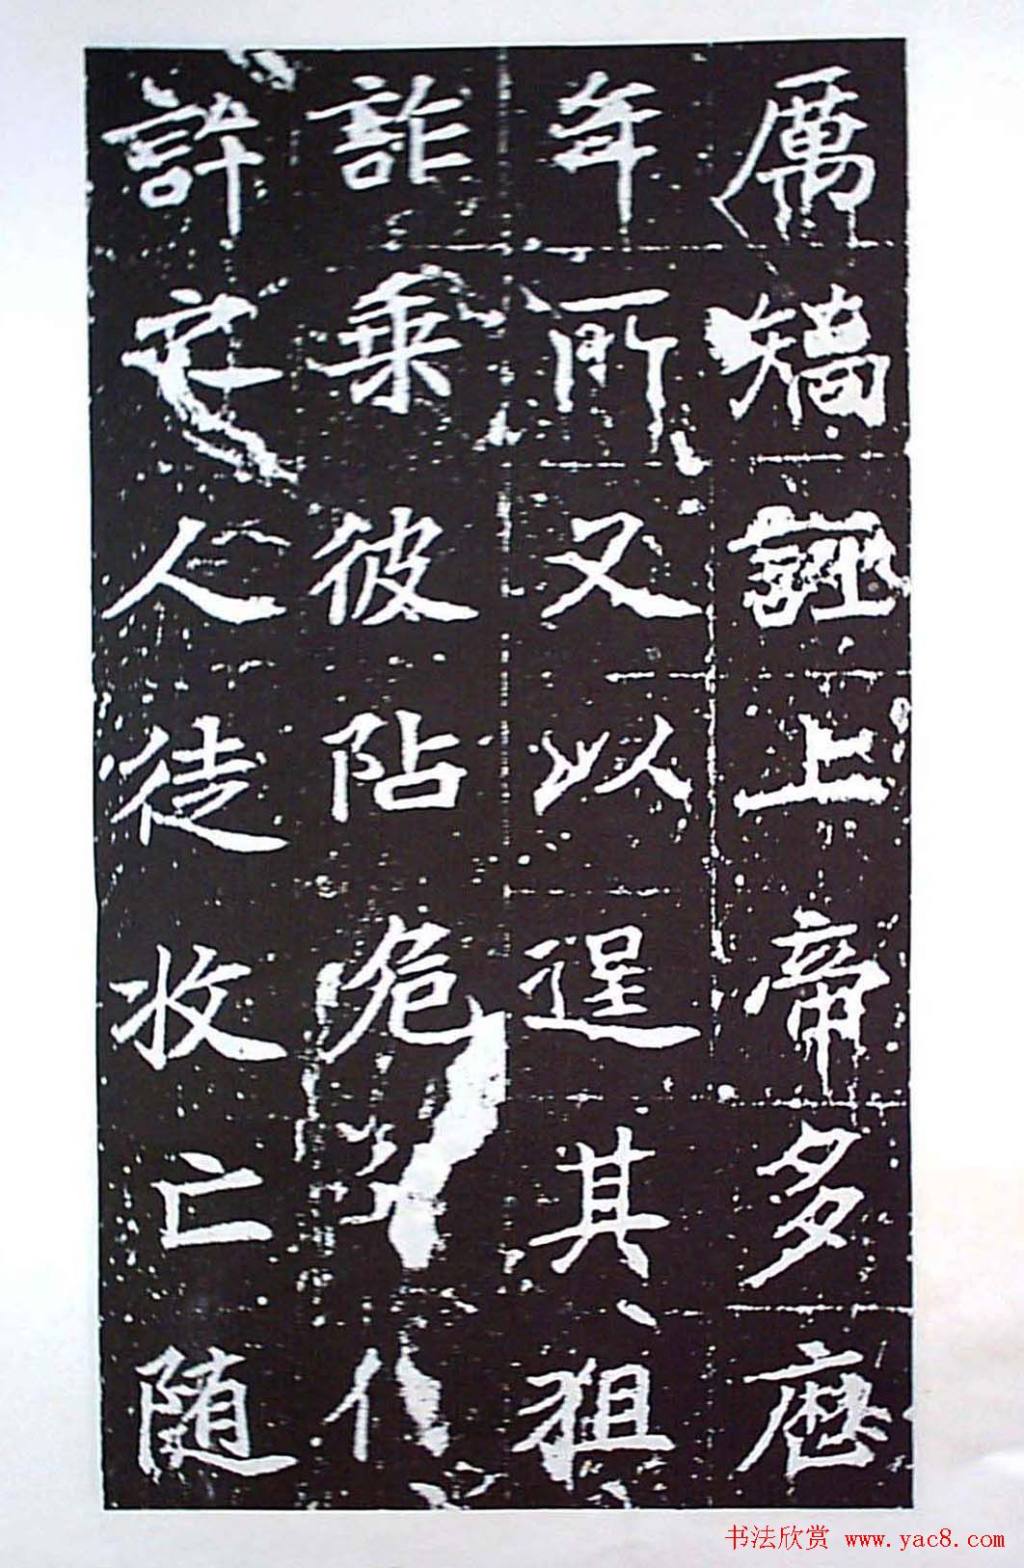 厲矯誣上帝多歷
年所又以逞其狙
詐乘彼阽危
許人徒收亡随
书法欣赏 www.yac8.com